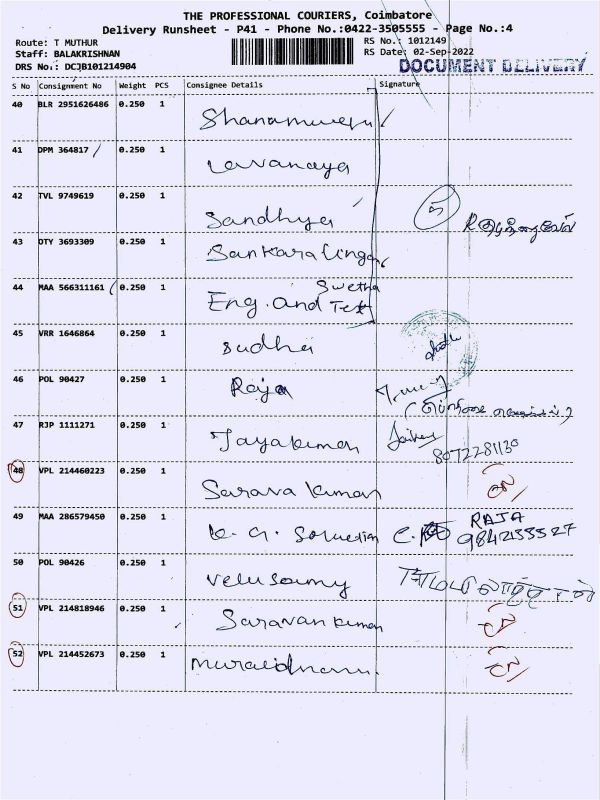 THE PROFESSIONAL COURIERS, Coimbatore
Delivery Runsheet - P41 - Phone No.:0422-3505555 - Page No.:4
Route: T MUTHUR
RS No.: 1012149
Staff: BALAKRISHNAN
RS Date: 02-Sep-2022
DRS No.: DCJB101214904
DOCUMENT DELIVERY
S No Consignment No Weight PCS Consignee Details Signature
40 BLR 2951626486 0.250 1
41 DPM 364817 0.250 1 Lavanaya
42 TVL 9749619 0.250 1 Sandhya
43 OTY 3693309 0.250 1 Sankaralinga
44 MAA 566311161 0.250 1 Swetha
Eng. and Tex
45 VRR 1646864 0.250 1 Sudha
46 POL 90427 0.250 1 Raja
47 RJP 1111271 0.250 1 Jayakumar
8072281130
48 VPL 214460223 0.250 1 Sarava kumar
49 MAA 286579450 0.250 1 K. G. Solution RAJA
50 POL 90426 0.250 1 Velusamy
51 VPL 214818946 0.250 1 Saravan kumar
52 VPL 214452673 0.250 1